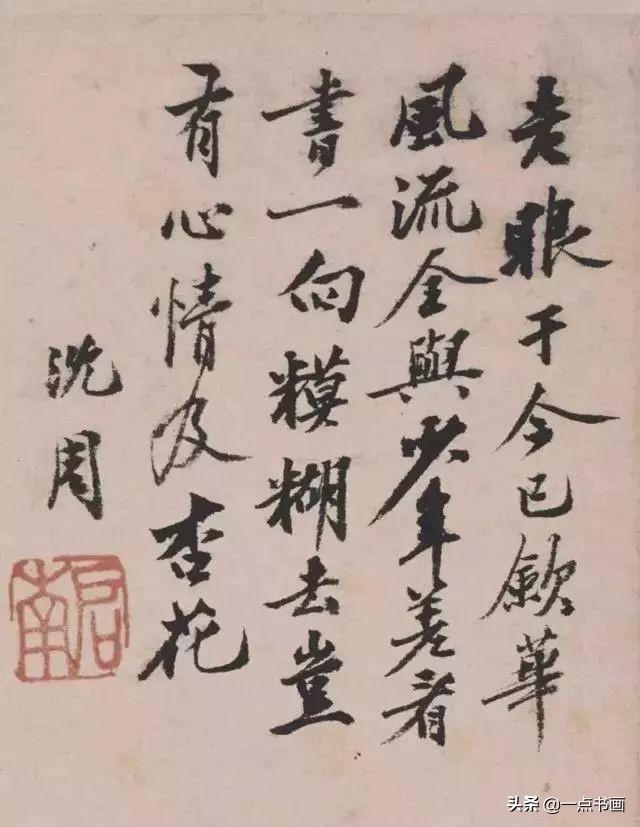 老眼于今已歛華
風流全與少年差看
書一向糢糊去豈
有心情及杏花
沈周
啟南
头条 @一点书画